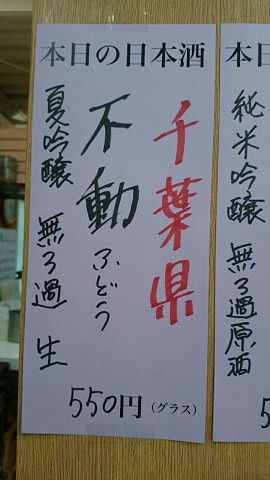 本日の日本酒
千葉県
不動 ふどう
夏吟醸 無ろ過 生
550円(グラス)
本日
純米吟醸 無ろ過原酒
5